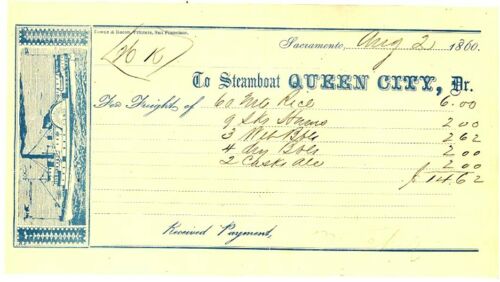 Towne & Bacon, Printers, San Francisco.
H K
Sacramento, Aug 2 1860.
To Steamboat QUEEN CITY, Dr.
For Freight of 60 Mts Rice 6.00
9 Sks 2 00
3 Wet Bbls 2 62
4 Dry Bbls 2 00
2 Casks Ale 2 00
$ 14.62
Received Payment,